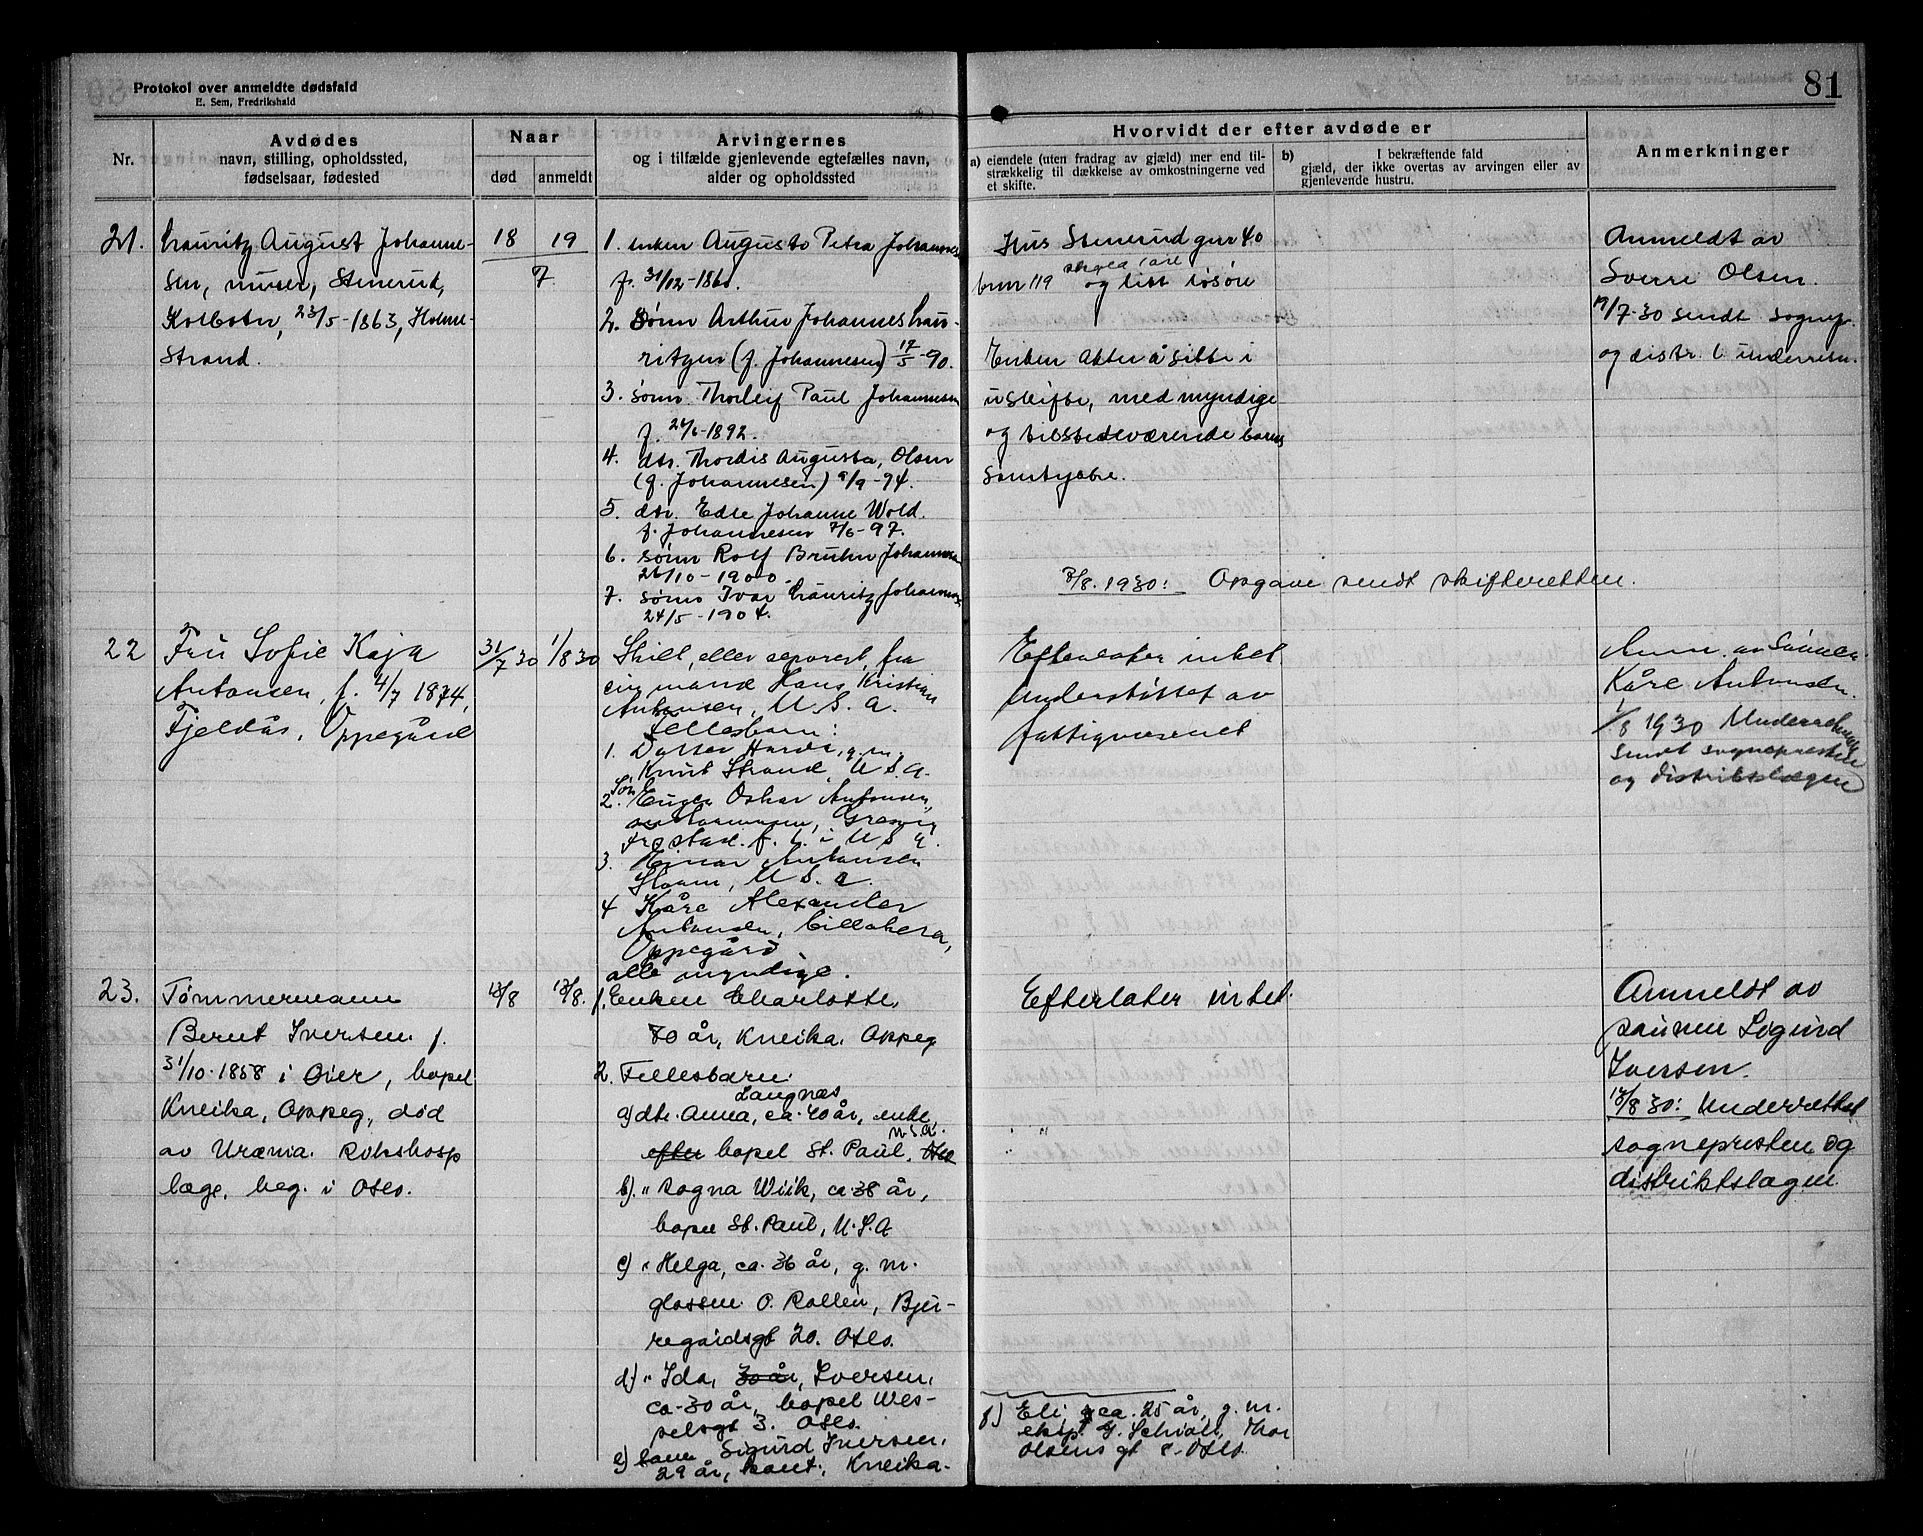 Protokol over anmeldte dødsfald
E. Sem, Fredrikshald
81
Nr.
Avdødes
navn, stilling, opholdssted,
fødselsaar, fødested
Naar
død
anmeldt
Arvingernes
og i tilfælde gjenlevende egtefælles navn,
alder og opholdssted
Hvorvidt der efter avdøde er
a) eiendele (uten fradrag av gjæld) mer end til-
strækkelig til dækkelse av omkostningerne ved
et skifte.
b) I bekræftende fald
gjæld, der ikke overtas av arvingen eller av
gjenlevende hustru.
Anmerkninger
21.
Lauritz August Johanne-
sen, murer, Stenerud,
Kolbotn, 23/5-1863, Holme-
strand.
18 19
7
1. enken Augusta Petra Johannes
f. 31/12-1860.
2. Sønn Arthur Johannes Lau-
ritzen (f. Johannesen) 17/5-90.
3. sønn Thorleif Paul Johannesen
f. 1892.
4. dtr. Thordis Augusta, Olsen
(f. Johannesen) 9/9-94.
5. dtr. Edle Johanne Wold
f. Johannesen 7/6-97.
6. sønn Rolf Bruhn Johannsen
26/10-1900.
7. sønn Ivar Lauritz Johannes
24/5-1904.
Hus Stenerud gnr 40
bnr 119 og litt løsøre
Enken akter å sitte i
uskifte, med myndige
og tilstedeværende barns
samtykke.
8/8.1930: Opgave sendt skifteretten.
Anmeldt av
Sverre Olsen.
19/7-30 sendt sognep.
og distr. l underretn.
22
Fru Sofie Kaja
Antonsen, f. 4/7 1874,
Fjeldås, Oppegård
31/7 30 1/8 30
Skilt, eller separert, fra
sin mand Hans Kristian
Antonsen, U.S.A.
Fellesbarn:
1. Datter g.m.
Knut Strand, U.S.A.
Søn
2. Oskar Antonsen,
Gresvig
Frstad. f. t. i U S A.
3. Einar Antonsen
U.S.A.
4 Kåre Alexander
Antonsen, Lillohera,
Oppegård
alle myndige.
Efterlater intet
Understøttet av
fattigvæsenet
Anm. av Sønnen
Kåre Antonsen.
1/8 1930 Underretning
sendt sognepresten
og distriktslægen
23.
Tømmermann
Bernt Iversen f.
31/10-1858 i Øier, bopel
Kneika, Oppeg, død
av Uræmia. Rikshosp
læge, beg. i Oslo.
13/8 13/8.
1. Enken Charlotte,
70 år, Kneika. Oppeg
2. Fellesbarn.
Langnæs
a) dtr. Anna, ca. 40 år, enke
U.S.A.
efter bopel St. Paul, Oslo
b). " Ragna Wiik, ca 38 år,
bopel St. Paul, U.S.A
c) " Helga, ca. 36 år, g. m.
O. Rallén, Bjer-
regaardsgt 20. Oslo.
d) " Ida, 30 år, Iversen,
ca. 30 år, bopel Wes-
selsgt 3. Oslo.
e) Sigurd Iversen,
29 år, Kneika.
Efterlater intet.
f) Eli, ca. 25 år, g. m.
eksp. G. Schiøll, Thor
Olsens gt 8. Oslo
Anmeldt av
sønnen Sigurd
Iversen.
13/8 30: Underrettet
sognepresten og
distriktslægen.